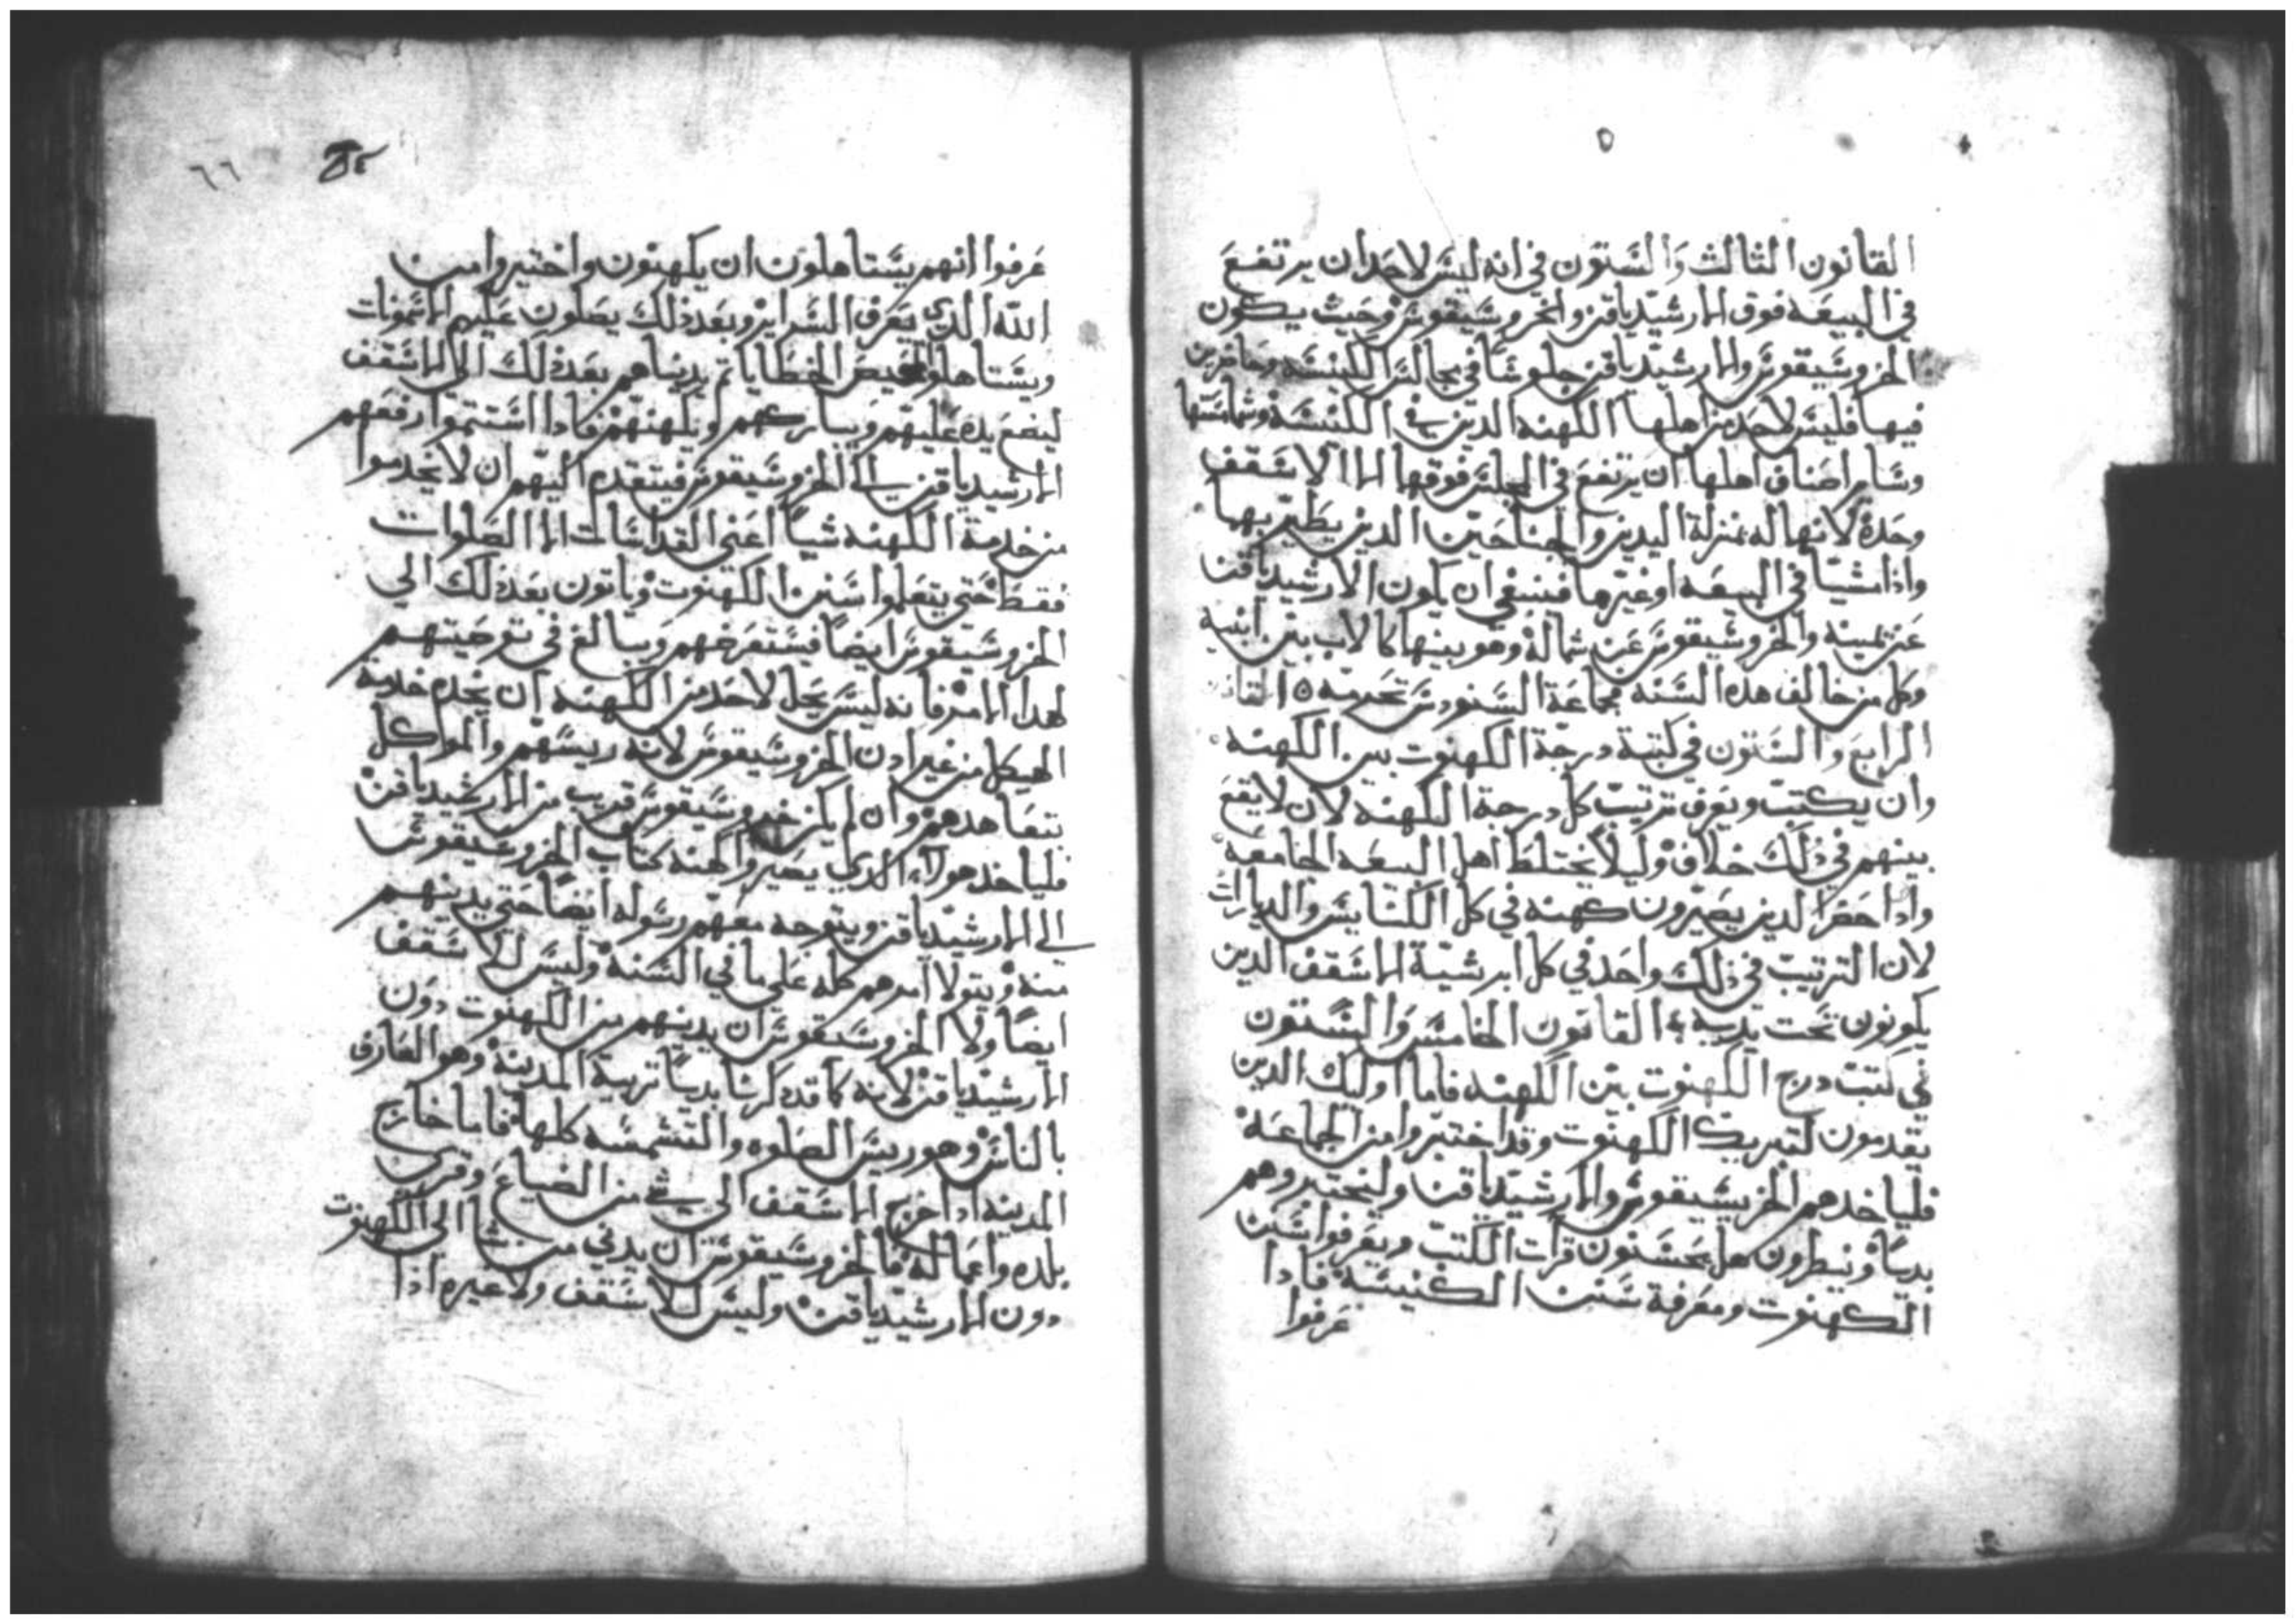 القانون الثالث والستون في انه ليس لاحد ان يرتفع
في البيعه فوق الارشيدياقن والخروسيقوس وحيث يكون
الخروسيقوس والارشيدياقن جلوسًا في مجالس الكنيسه وحاضرين
فيها فليس لاحد من اهلها الكهنه الدين في الكنيسه وشمامستها
وساير اصناف اهلها ان يرتفع في المجلس فوقها الا الاسقف
وحده لانها له بمنزلة اليدين والجناحين الدين يطير بهما
واذا مشيا في البيعه او غيرها فينبغي ان يكون الارشيدياقن
عن يمينه والخروسيقوس عن شماله وهو بينها كالاب بين ابنيه
وكل من خالف هده السنه فجماعة السنودس تحرمه ٥ القانون
الرابع والستون في كتبة درجة الكهنوت بين الكهنه
وان يكتب ويعرف ترتيب كل درجة الكهنه لان لا يقع
بينهم في ذلك خلاف وليلا يختلط اهل البيعه الجامعه
واذا حضر الدين يصيرون كهنه في كل الكنايس والديارات
لان الترتيب في ذلك واحد في كل ابرشية الاسقف الدين
يكونون تحت تدبيره القانون الخامس والستون
في كتبت درج الكهنوت بين الكهنه فاما اوليك الدين
يقدمون لتبريك الكهنوت وقد اختبروا من الجماعه
فلياخدهم الخريسيقوس والارشيدياقن وليختبروهم
بديا وينطرون هل يحسنون قرات الكتب ويعرفوا سنن
الكهنوت ومعرفة سنن الكنيسه فادا
عرفوا
٦٦
عرفوا انهم يستاهلون ان يكهنون واختيروا من
الله الدي يعرف السراير وبعد ذلك يصلون عليهم الاسمونات
ويستاهلوا تمحيص الخطايا تم يدنياهم بعد ذلك الى الاسقف
ليضع يده عليهم ويباركهم ويكهنهم فادا استتموا رفعهم
الارشيدياقن الى الخروسيقوس فيتقدم اليهم ان لا يخدموا
من خدمة الكهنه شيًا اعني القداسات الا الصلوات
فقط حتى يتعلموا سنن الكهنوت وياتون بعد ذلك الي
الخروسيقوس ايضًا فيستعرضهم ويبالغ في توصيتهم
لهدا الامر فانه ليس يحل لاحد من الكهنه ان يخدم خدمة
الهيكل من غير ادن الخروسيقوس لانه رييسهم والموكل
بتعاهدهم وان لم يكن خروسيقوس قريب من الارشيدياقن
فلياخد هولاء الدي يصيروا كهنه كتاب الخروسيقوس
الى الارشيدياقن ويتوجه معهم رسوله ايضًا حتى يدنيهم
منه ويتولا امرهم كله على ما في السنه وليس للاسقف
ايضًا ولا الخروسيقوس ان يدنيهم من الكهنوت دون
الارشيدياقن لانه كما قد دكرنا بديا تربية المدينه وهو العارف
بالناس وهو رييس الصلوه والتشمسه كلها فاما خارج
المدينه ادا خرج الاسقف الى شي من الضياع وقرى
بلده واعماله فالخروسيقوس ان يدني من شا الى الكهنوت
دون الارشيدياقن وليس للاسقف ولا غيره اذا